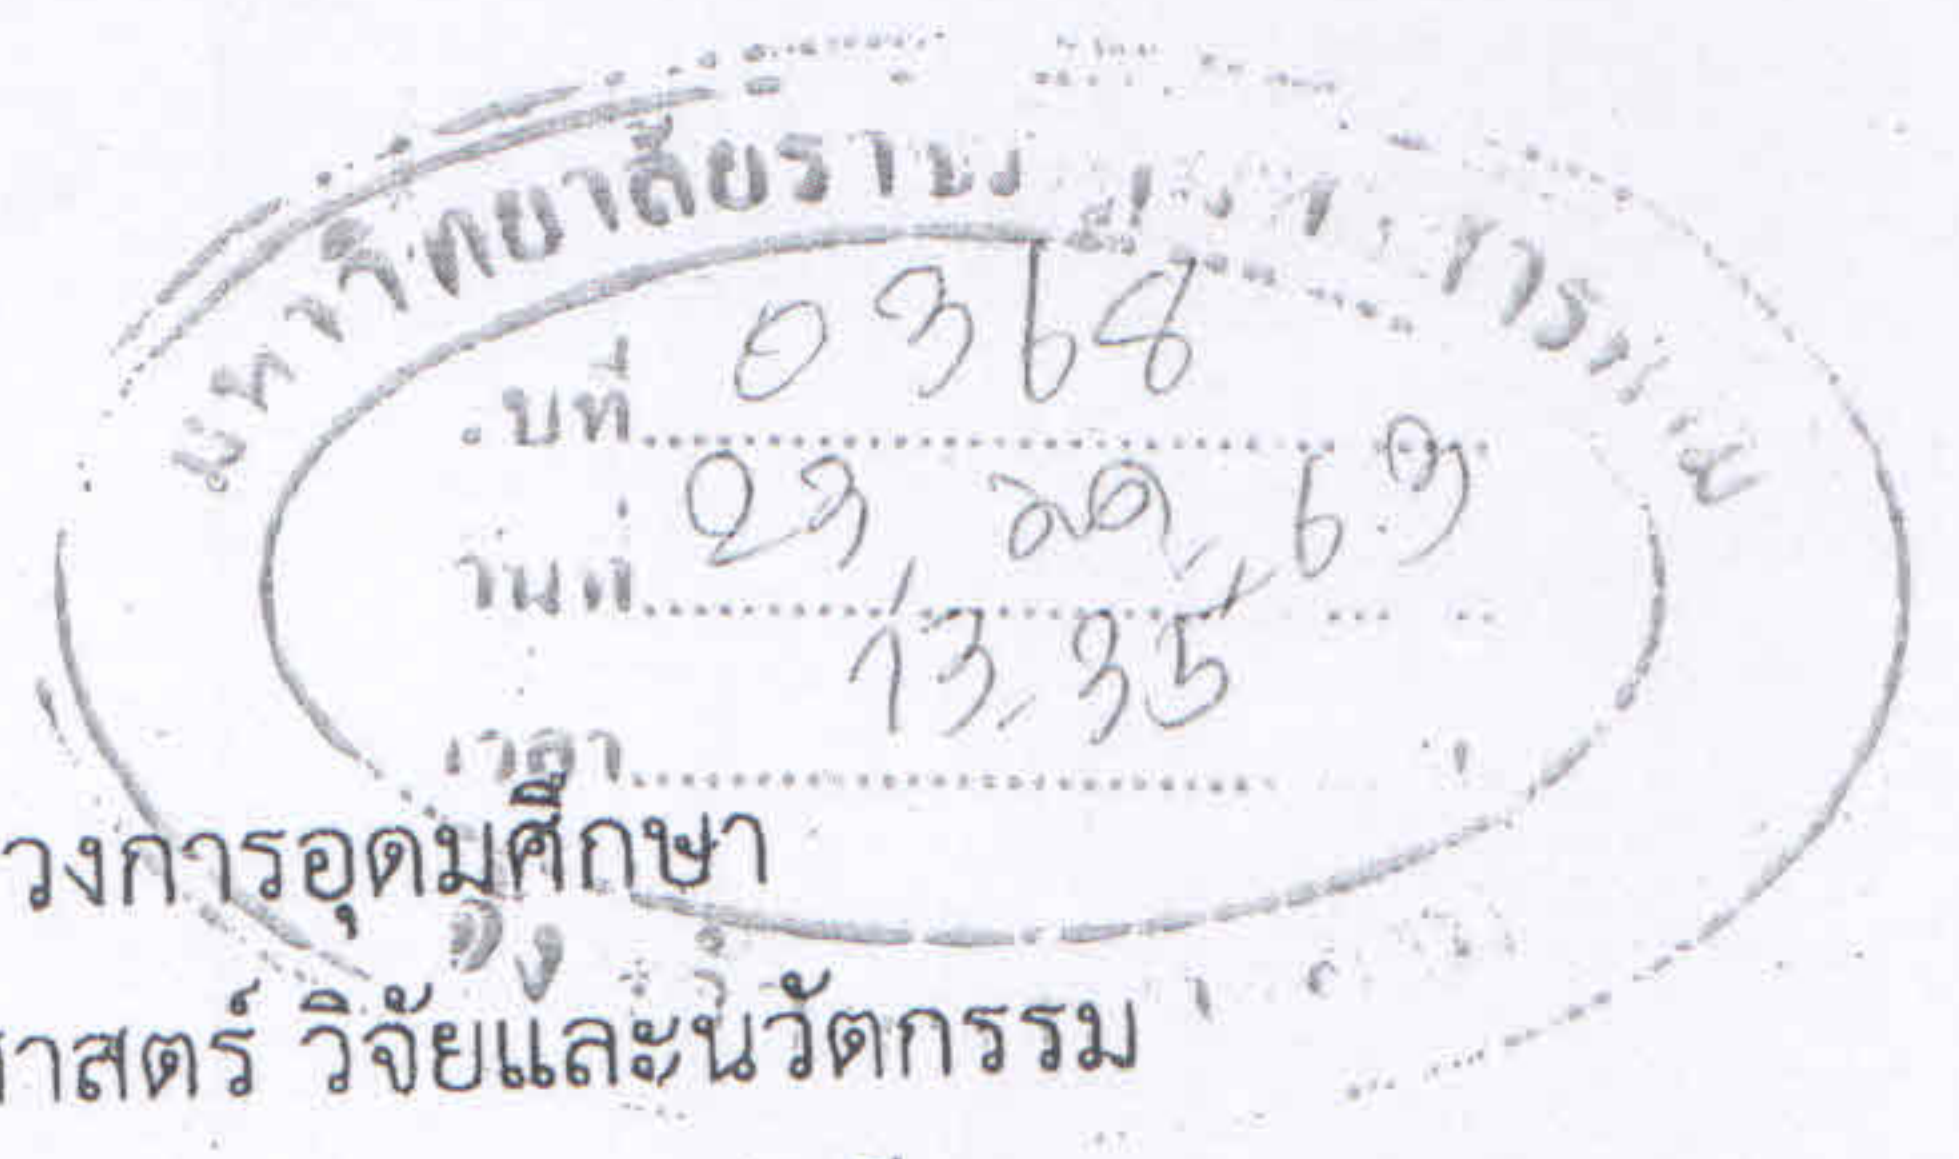 มหาวิทยาลัยราช
รับที่ 0368
วันที่ 23 มค 63
เวลา 13.35
วงการอุดมศึกษา
าสตร์ วิจัยและนวัตกรรม